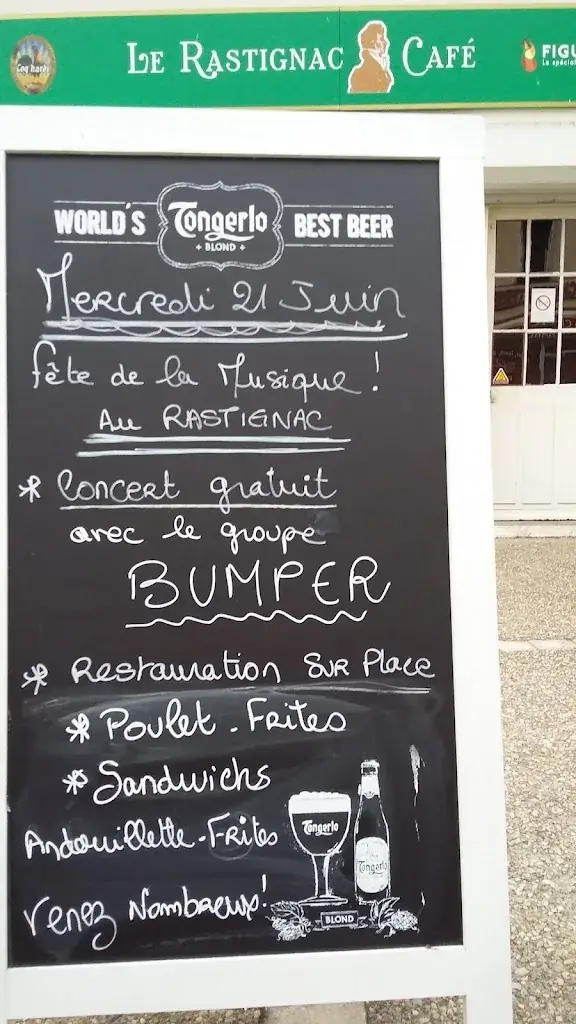 Coq hardi
LE RASTIGNAC CAFÉ
FIGU
La spécial
WORLD'S Tongerlo BEST BEER
BLOND
Mercredi 21 Juin
fête de la Musique !
Au RASTIGNAC
* Concert gratuit
avec le groupe
BUMPER
* Restauration Sur Place
* Poulet - Frites
* Sandwichs
Andouillette - Frites
Venez Nombreux !
Tongerlo
Tongerlo
BLOND